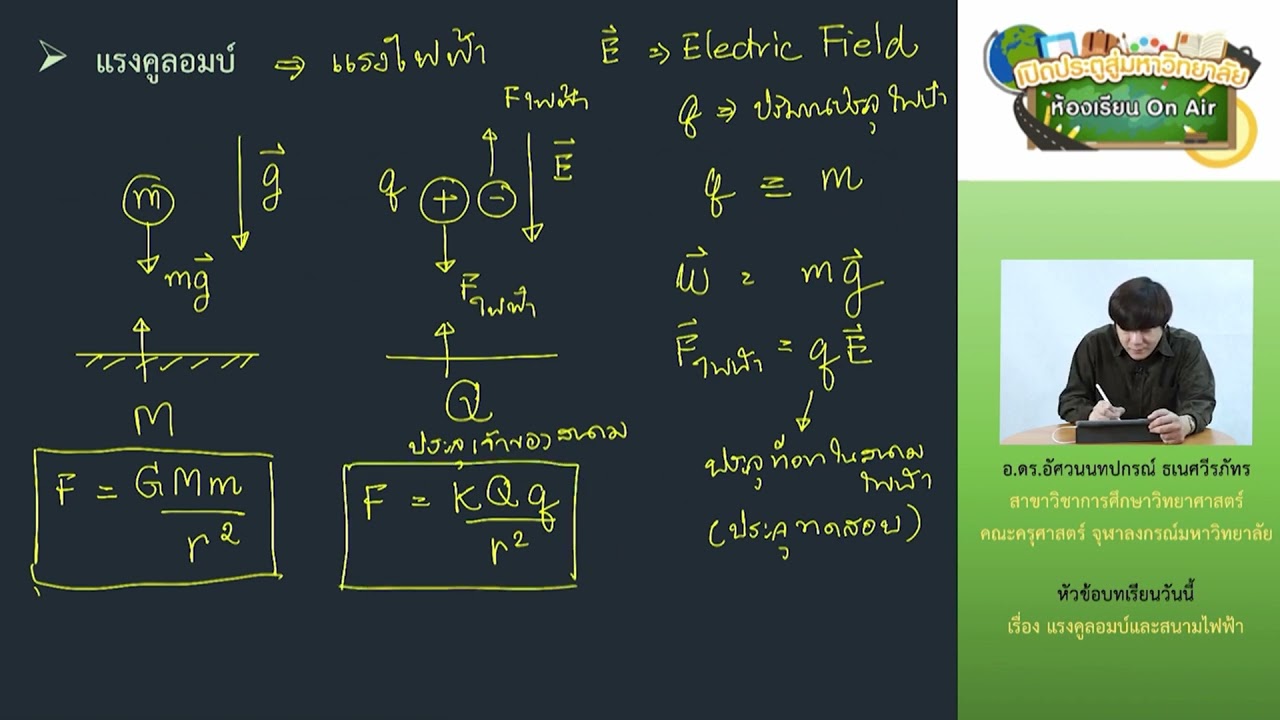 แรงคูลอมบ์ ⇒ แรงไฟฟ้า
E ⇒ Electric Field
q ⇒ ปริมาณประจุไฟฟ้า
q ≡ m
w = mg
F ไฟฟ้า = qE
ประจุที่อยู่ในสนาม
ไฟฟ้า
(ประจุทดสอบ)
m
g
mg
M
F = GMm
r²
F ไฟฟ้า
q + -
E
F ไฟฟ้า
Q
ประจุเจ้าของสนาม
F = KQq
r²
เปิดประตูสู่มหาวิทยาลัย
ห้องเรียน On Air
อ.ดร.อัศวนนทปกรณ์ ธเนศวีรภัทร
สาขาวิชาการศึกษาวิทยาศาสตร์
คณะครุศาสตร์ จุฬาลงกรณ์มหาวิทยาลัย
หัวข้อบทเรียนวันนี้
เรื่อง แรงคูลอมบ์และสนามไฟฟ้า